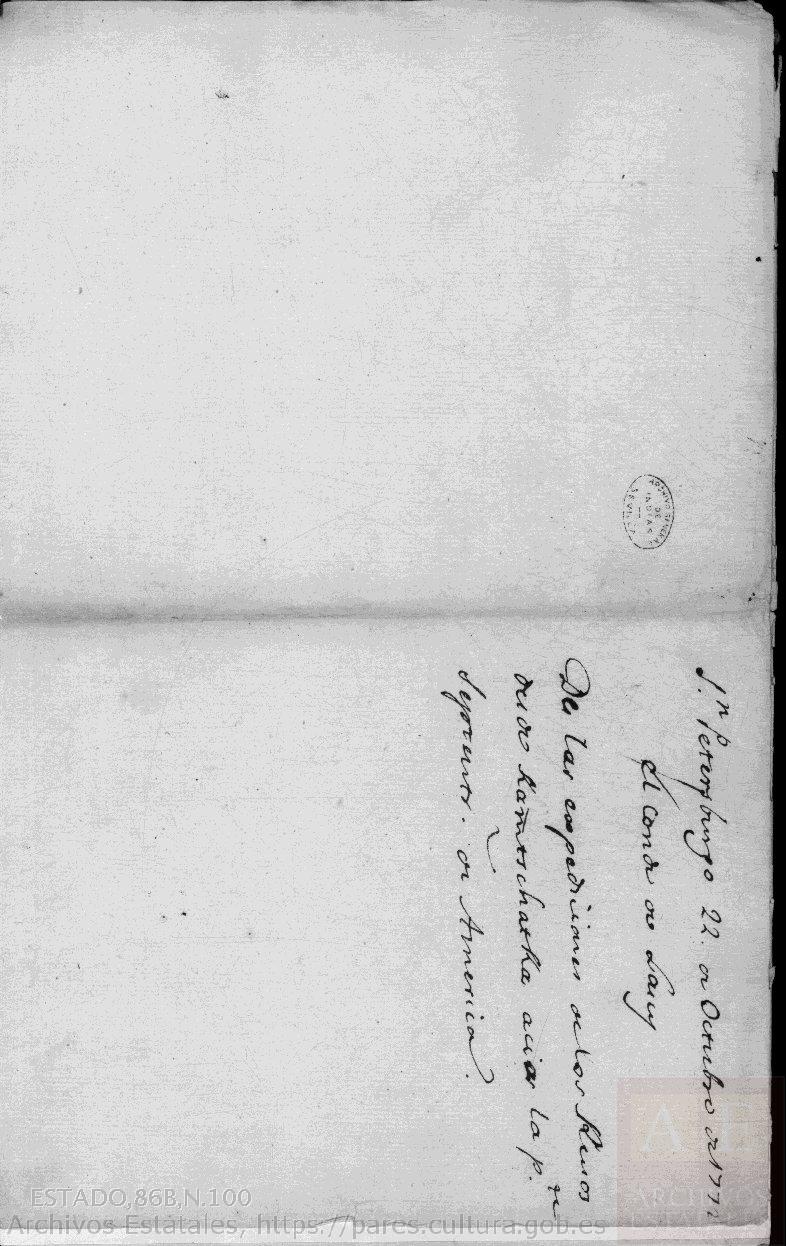 S.n Petersburgo 22. de Octubre de 1772
El Conde de Lacy
De las expediciones de los Rusos
desde Kamtschatka acia la p.te
Septentr. de America.
ARCHIVO GENERAL
DE
INDIAS
SEVILLA
ESTADO,86B,N.100
Archivos Estatales, https://pares.cultura.gob.es
ARCHIVOS
ESTATALES